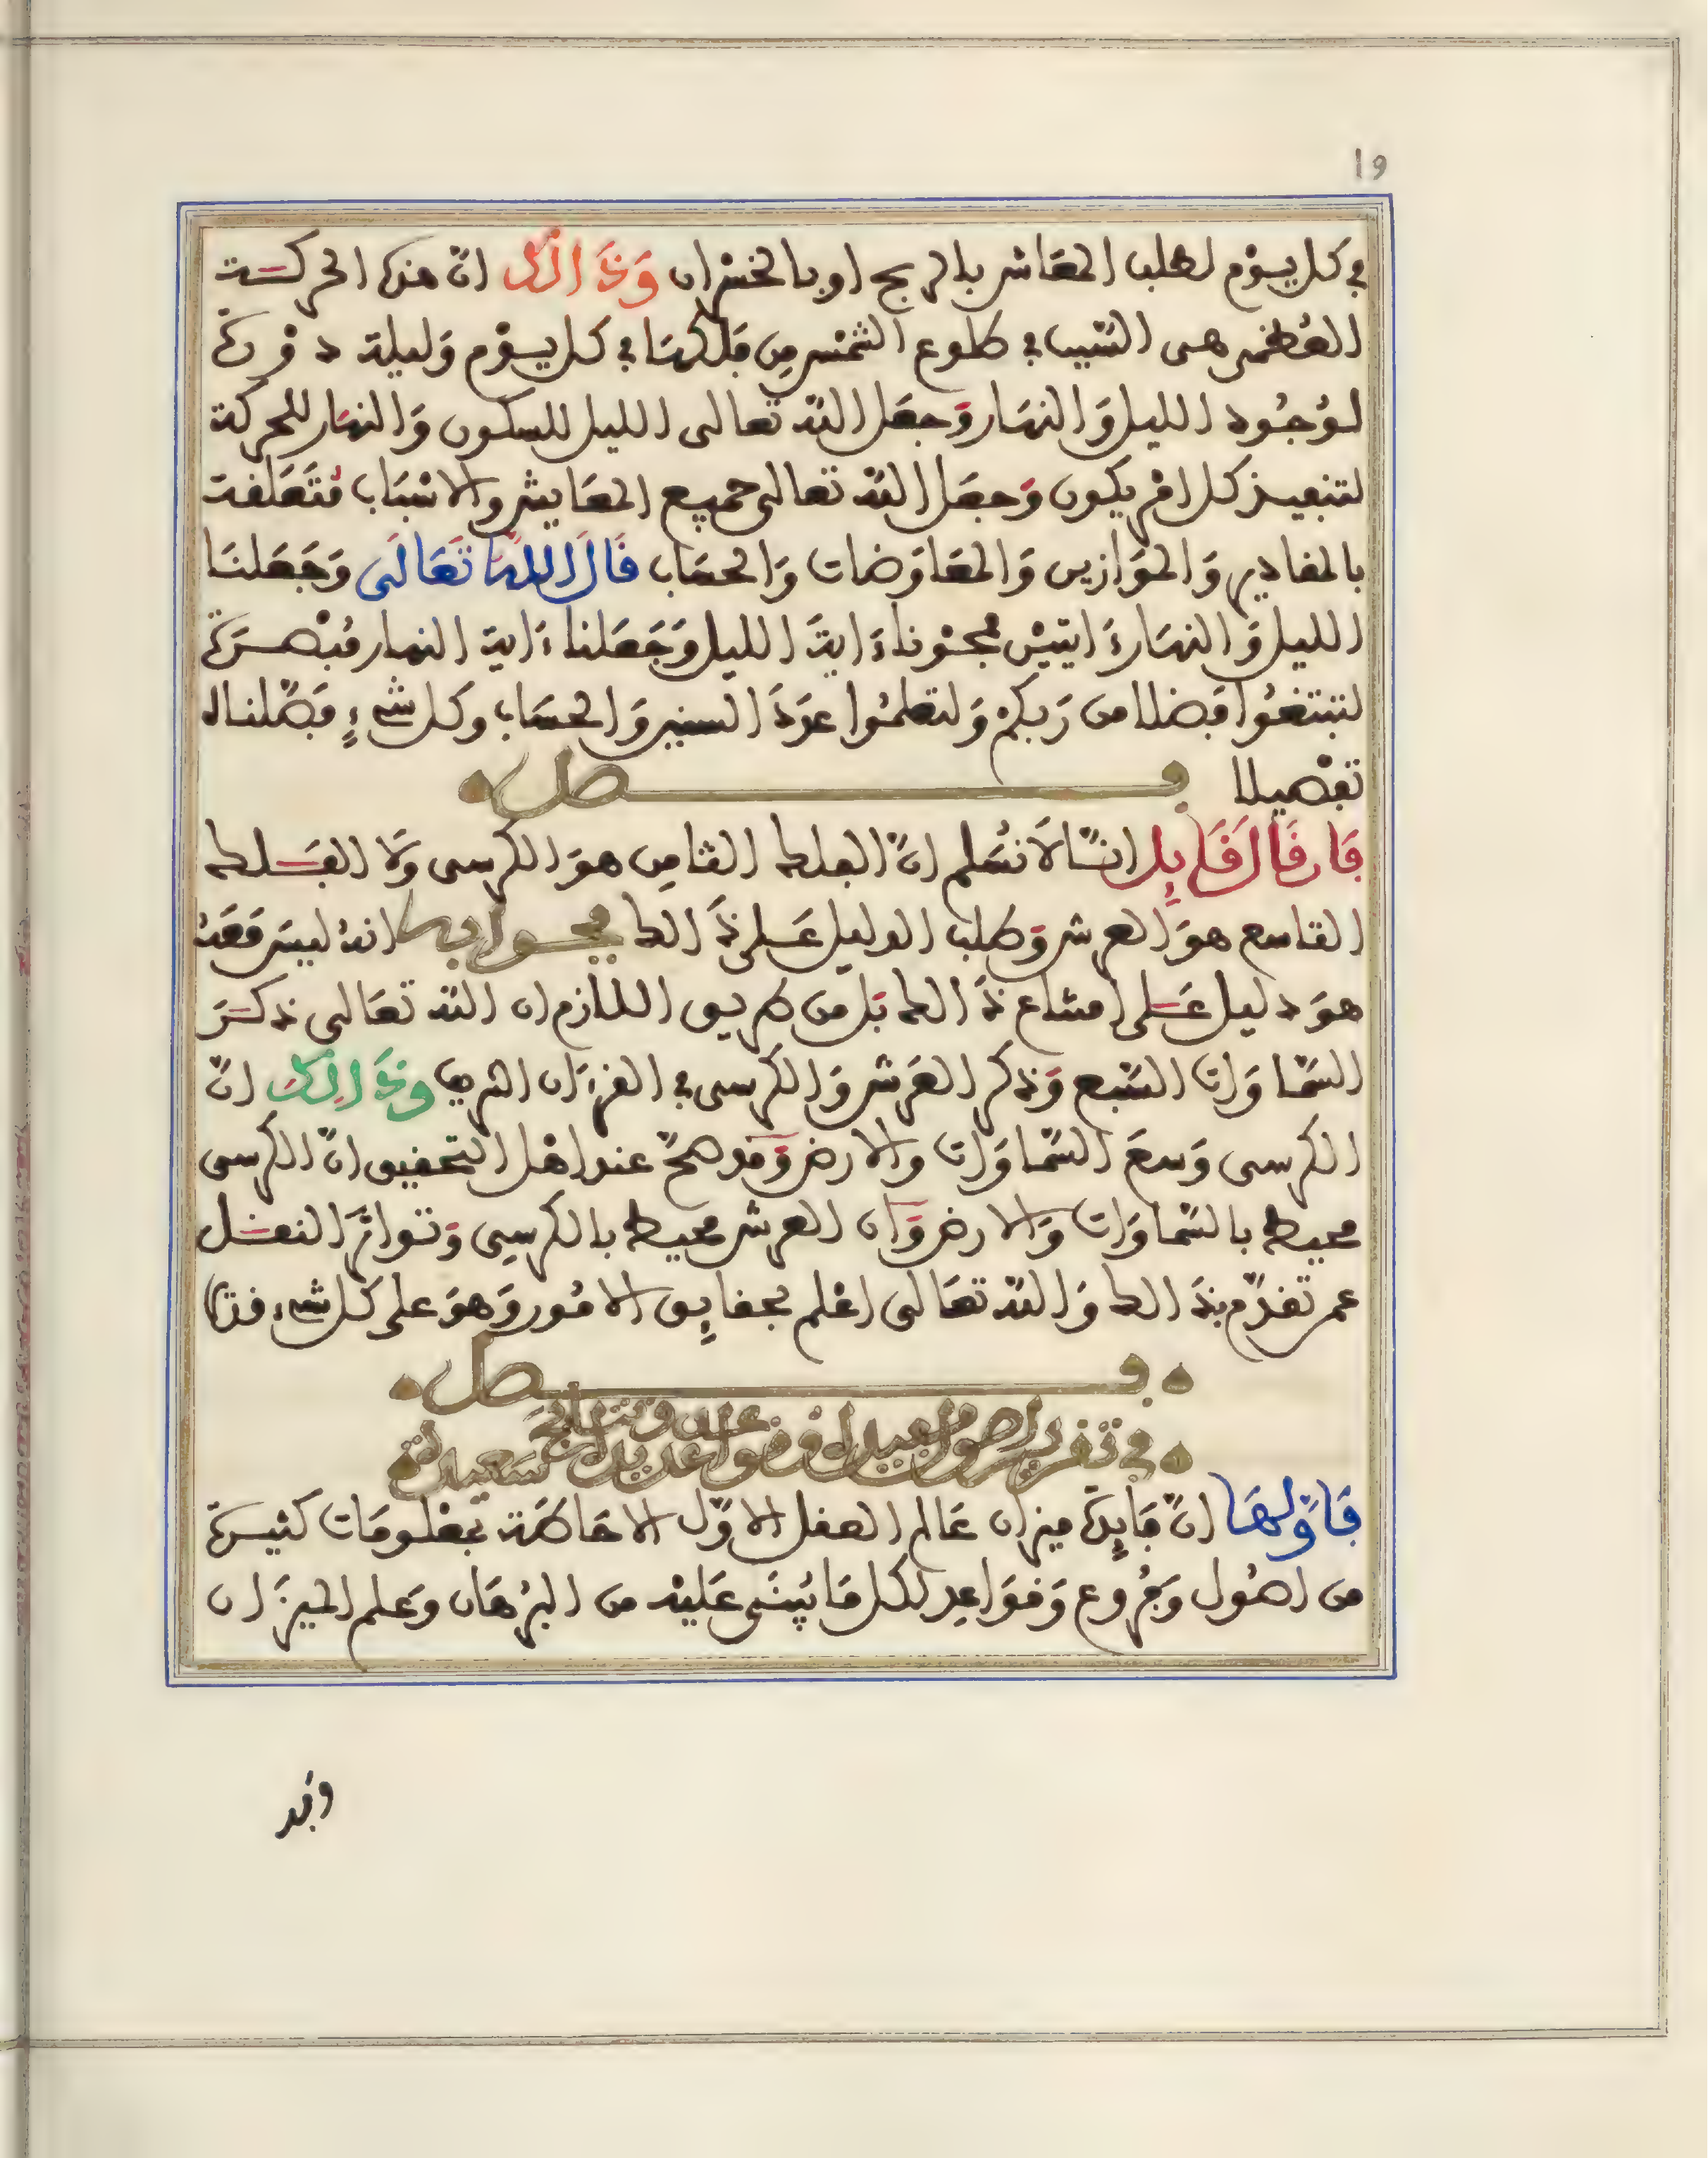 19
في كل يوم لطلب المعاش بالربح او بالخسران وَذَالك انّ هذه الحركـــة
العُظمى هي السّبب في طلوع الشمس من فلكها في كل يوم وَليلة دورة
لوُجُود الليل وَالنهَار وَجعَل اللّه تعالى الليل للسكون وَالنهَار للحركة
لتنفيذ كل امْر يكون وَجعَل اللّه تعالى جميع المعَايش والاسْبَاب مُتَعَلقة
بالمقادير وَالموَازين وَالمعَاوَضات وَالحسَاب قَالَ اللّهُ تَعَالَى وَجَعَلنَا
الليل وَالنهَار ءَايتيْن فمحوْنا ءَايةَ الليل وَجَعَلنا ءَاية النهار مُبْصــرَة
لتبتغُوا فضلا من رَبكمْ وَلتعلمُوا عدَدَ السنين وَالحسَاب وكل شيءٍ فصّلناه
تفْصيلا فـــــصل
فَان قَالَ قَايِل انــّا لَا نسَلم انّ الفلك الثامن هوَ الكرسى وَلا الفــَلك
التاسع هوَ العرش وَطلب الدليل عَلى ذَالك فجـوابه انهُ ليسَ مَعَهُ
هوَ دليل عَلى امتناع ذَالك بَل من طريق اللازم ان اللّه تعَالى ذكــَر
السّمَاوَات السّبع وَذكر العَرش وَالكرسى في القرءَان الشريف وذَالِكَ انّ
الكرسى وَسعَ السّمَاوَات والارض وَقد صحّ عند اهْل التحقيق انّ الكرسى
محيط بالسّماوَات وَالارض وَان العرش محيط بالكرسِى وَتواترَ النقــل
عمن تقدّم بذَالك وَاللّه تعَالى اعْلم بحقايِق الامُور وَهوَ على كل شيء قدير
فــــصل
في تقرير اصول مفيدة وقواعد عديدة ونتائج سعيدة
فَاوّلهَا انّ فَايِدَة ميزان عَالم العقل الاوّل الاحَاطَة بمعْلومَات كثيــرَة
من اصُول وَفُروع وَقوَاعِد لكل مَا يُبنَى عَليْه من البرْهَان وَعلم الميزَان
وقد